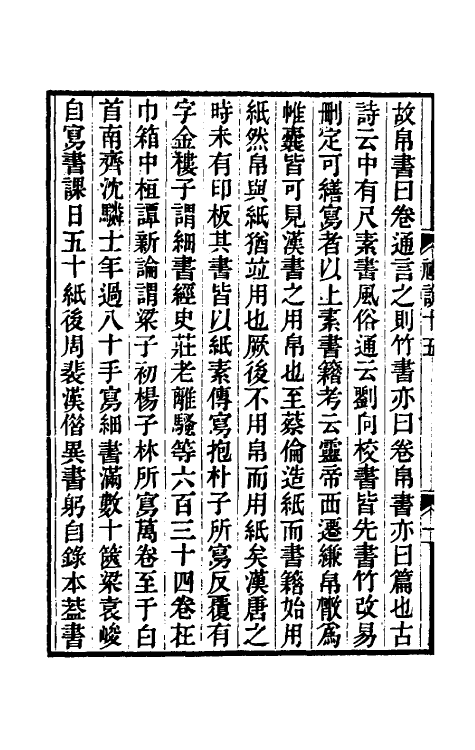 故帛書曰卷通言之則竹書亦曰卷帛書亦曰篇也古
詩云中有尺素書風俗通云劉向校書皆先書竹改易
刪定可繕寫者以上素書籍考云靈帝西遷縑帛散爲
帷囊皆可見漢書之用帛也至蔡倫造紙而書籍始用
紙然帛與紙猶竝用也厥後不用帛而用紙矣漢唐之
時未有印板其書皆以紙素傳寫抱朴子所寫反覆有
字金樓子謂細書經史莊老離騷等六百三十四卷在
巾箱中桓譚新論謂梁子初楊子林所寫萬卷至于白
首南齊沈驎士年過八十手寫細書滿數十篋梁袁峻
自寫書課日五十紙後周裴漢俗異書躬自錄本葢書
十五